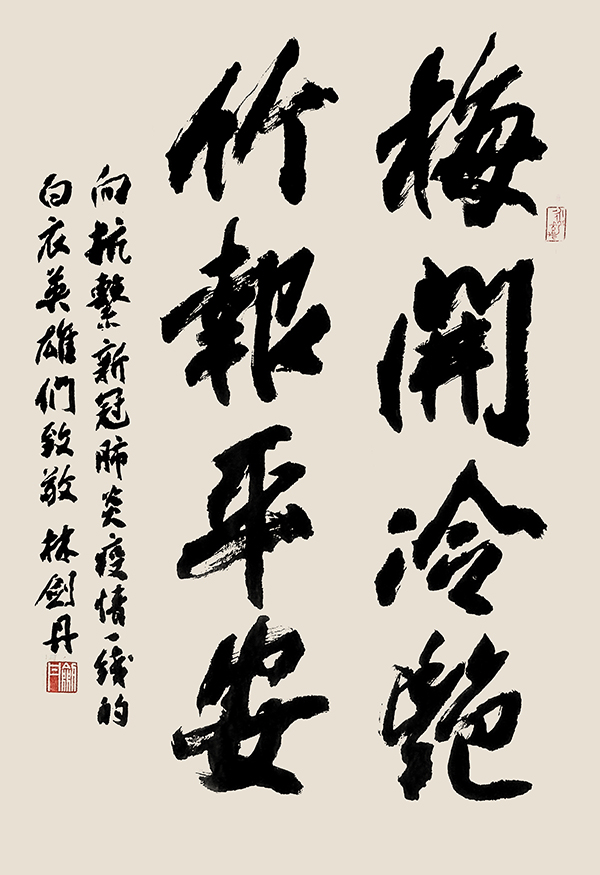 梅開冷艷
竹報平安
向抗擊新冠肺炎疫情一綫的
白衣英雄們致敬 林劍丹